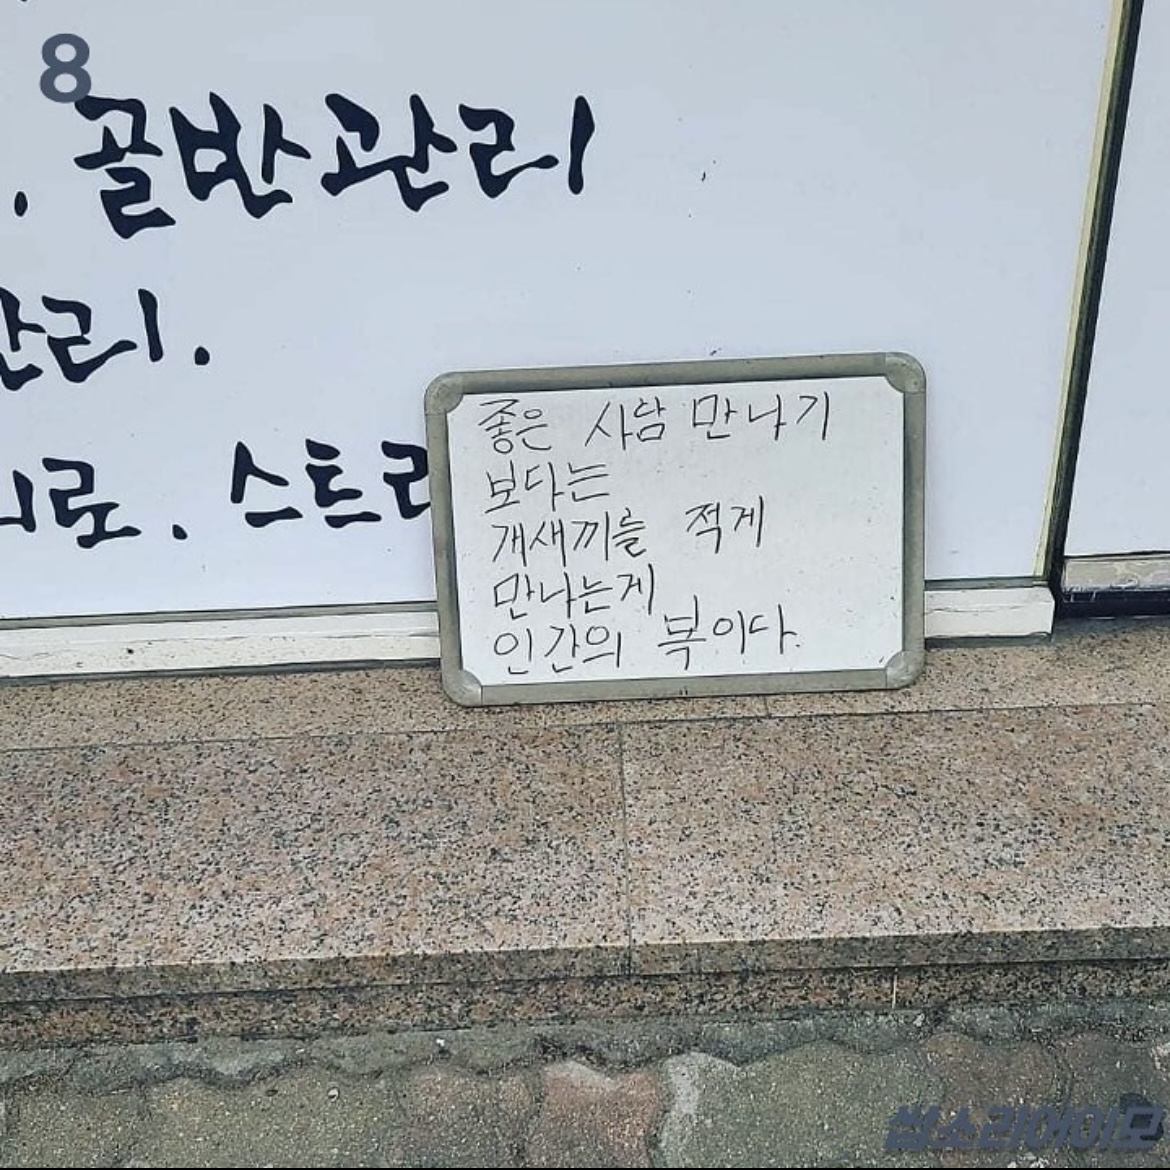 8
. 골반관리
관리.
피로. 스트레
좋은 사람 만나기
보다는
개새끼를 적게
만나는게
인간의 복이다.
쏩소리어이모